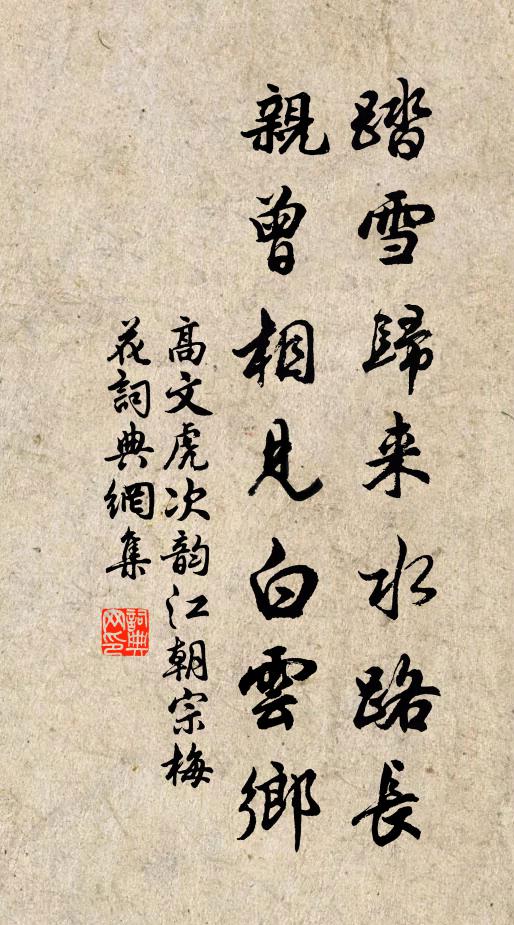 踏雪歸来水路長
親曾相見白雲鄉
高文虎次韵江朝宗梅
花詞典網集
詞典网印